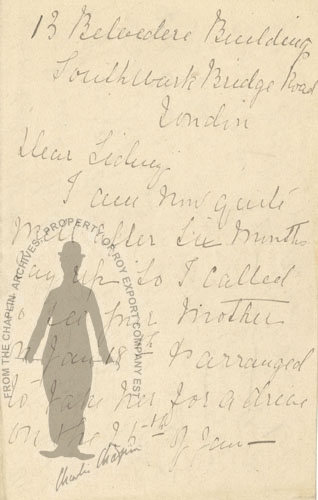 13 Belvedere Building
Southwark Bridge Road
London
Dear Sidney
I am now quite
well after six months
lay up so I called
to see your Mother
on Jan 18th & arranged
to take her for a drive
on the 25th of Jan—
FROM THE CHAPLIN ARCHIVES. PROPERTY OF ROY EXPORT COMPANY EST
Charlie Chaplin